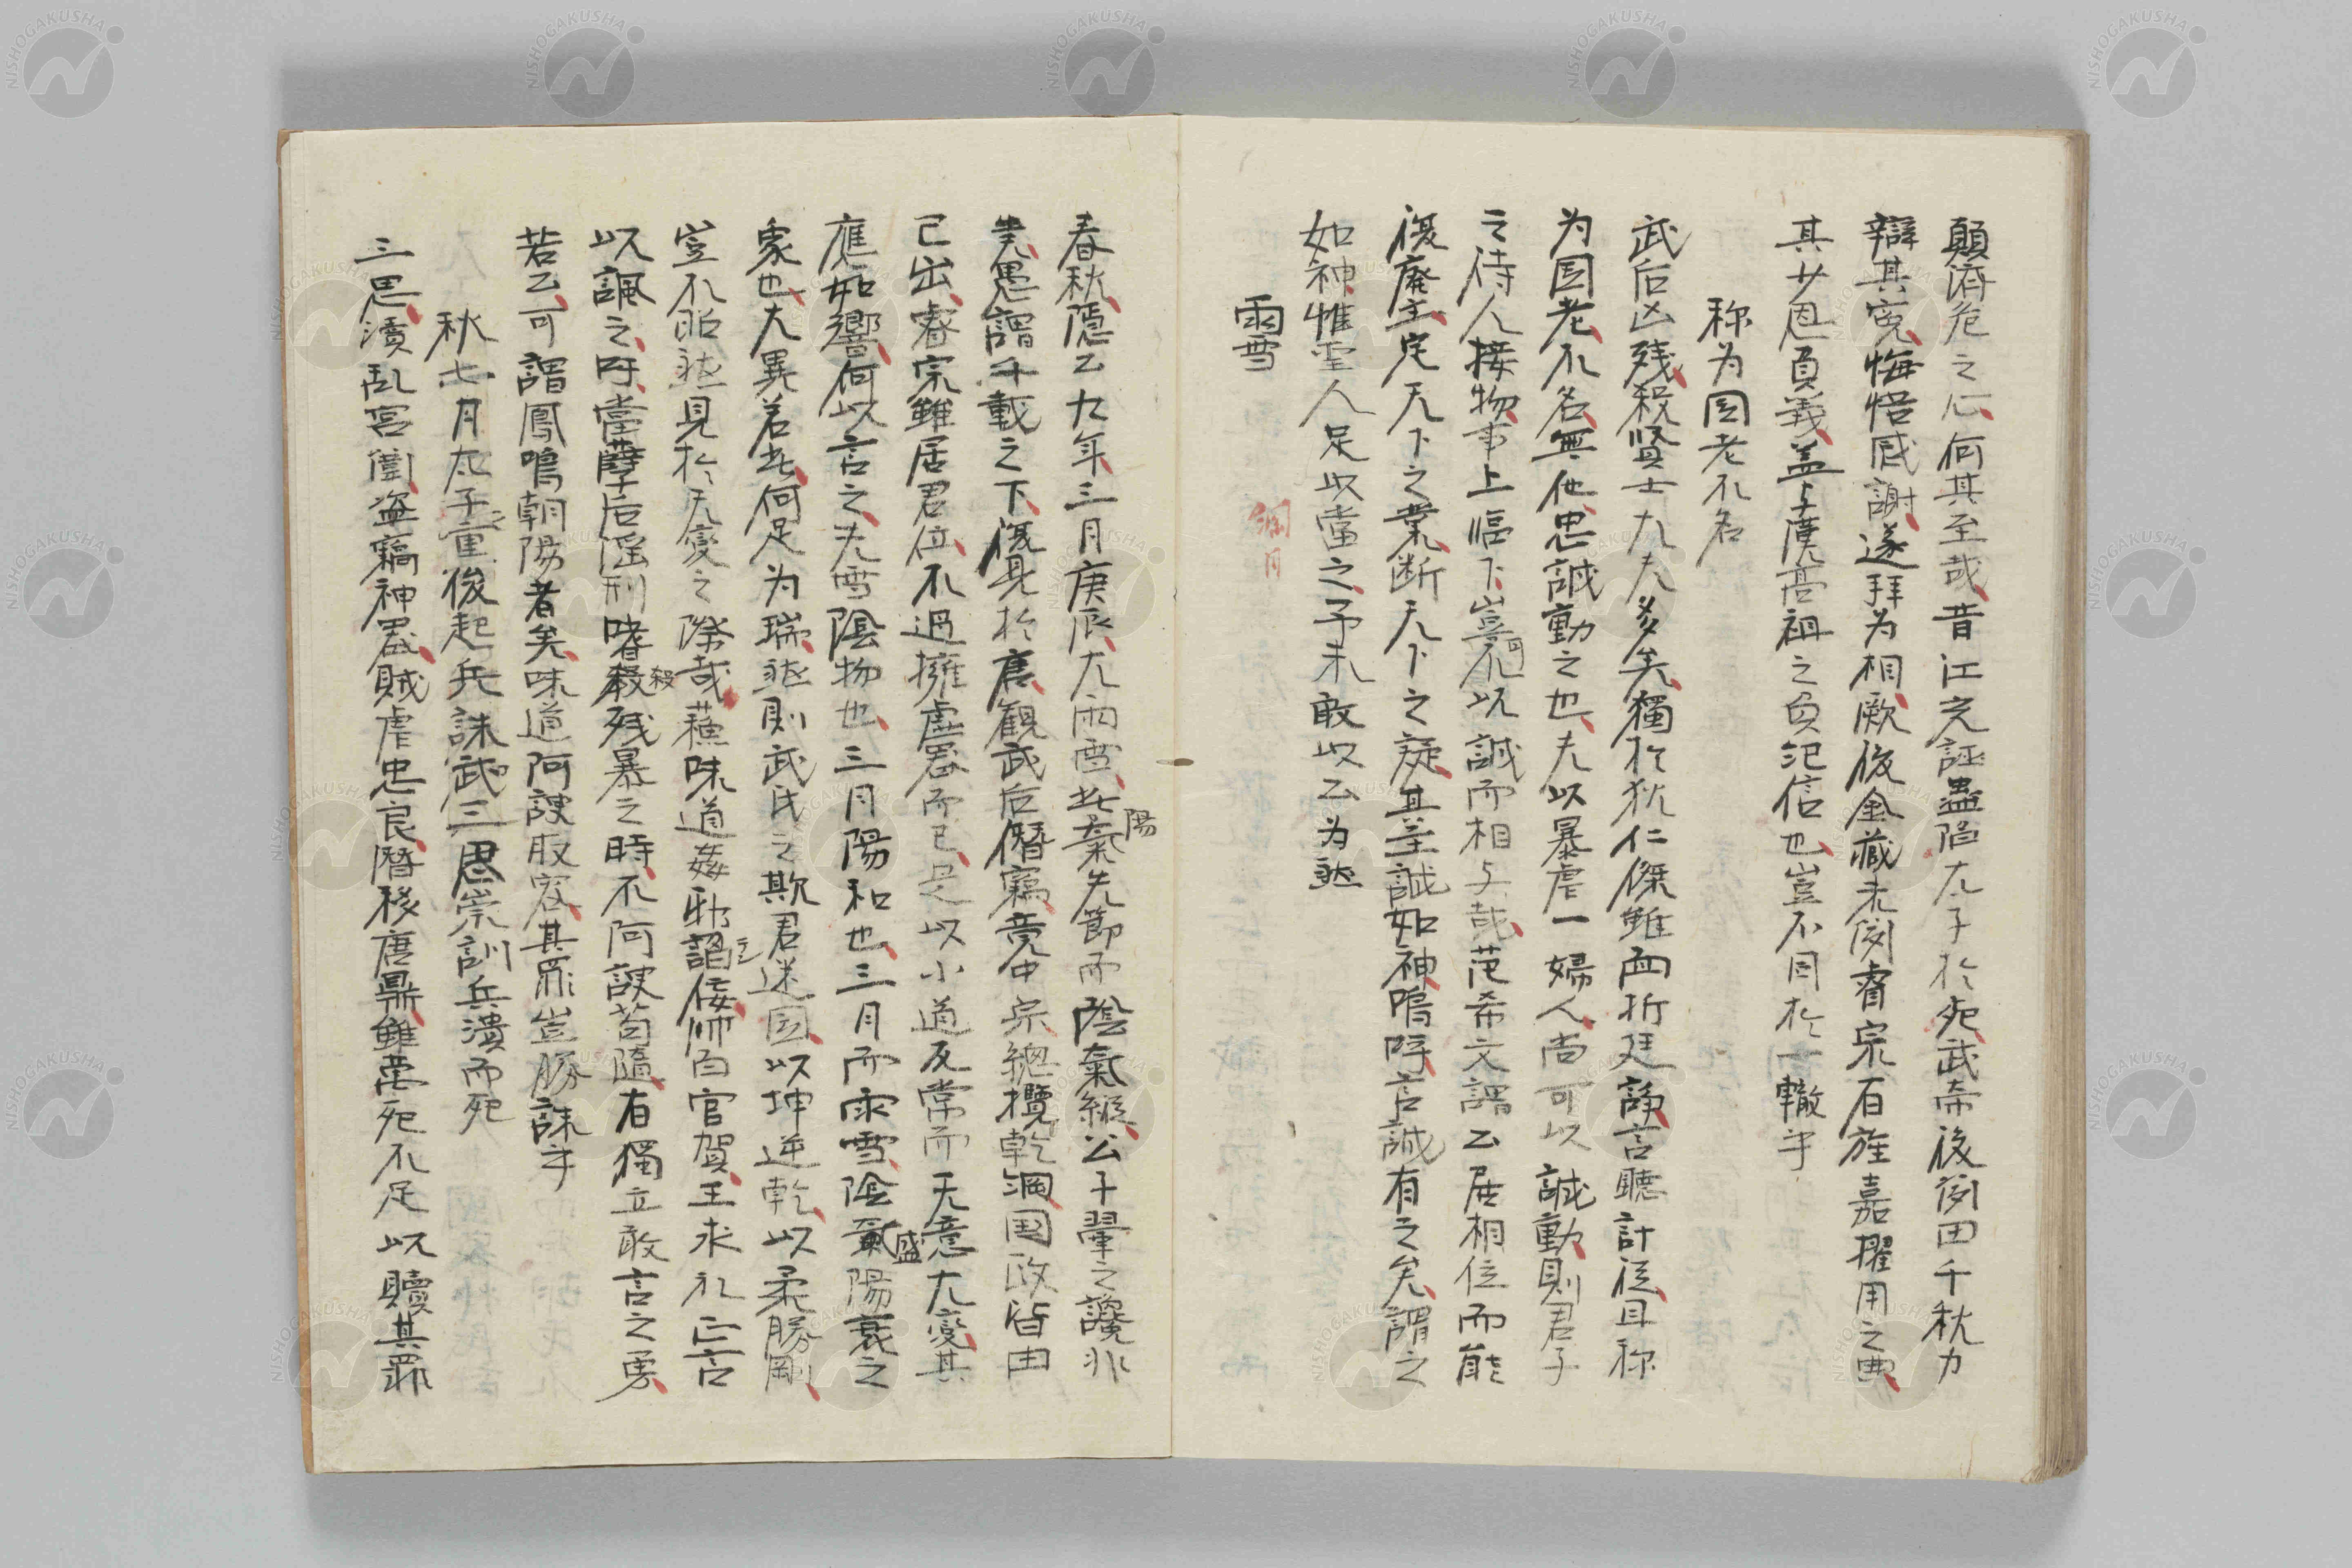 顛濟危之心何其至哉昔江充誣蠱陷太子於死武帝後因田千秋力
辯其寃悔悟感謝遂拜为相厥後金藏未闻睿宗有旌嘉擢用之典
其少恩負義盖与漢高祖之負纪信也豈不同於一轍乎
称为国老不名
武后凶残殺賢士大夫多矣獨於狄仁傑雖面折廷諍言聽計従且称
为国老不名無他忠誠動之也夫以暴虐一婦人尚可以誠動則君子
之待人接物事上临下豈可不以誠而相与哉范希文謂公居相位而能
復廃主定天下之業断天下之疑其至誠如神嗚呼言誠有之矣謂之
如神惟聖人足以當之予未敢以公为然
雨雪
閏月
春秋隱公九年三月庚辰大雨雪此陽氣先節而陰氣縦公子翬之讒兆
矣愚謂千載之下復見於唐観武后僭竊竟中宗總攬乾綱国政皆由
已出睿宗雖居君位不過擁虚器而已是以小道反常而天意大変其
應如響何以言之夫雪陰物也三月陽和也三月而雨雪陰氣盛陽衰之
象也大異若此何足为瑞然則武氏之欺君迷国以坤逆乾以柔勝剛
豈不昭然見於天変之際哉蘇味道姦邪謟佞之帅百官賀王求礼正言
以諷之吁當孽后淫刑嗜殺殺残暴之時不阿諛苟隨有獨立敢言之勇
若公可謂鳳鳴朝陽者矣味道阿諛取容其罪豈勝誅乎
秋七月太子重俊起兵誅武三思崇訓兵潰而死
三思瀆乱宮闈盗竊神器賊虐忠良潜移唐鼎雖萬死不足以贖其罪